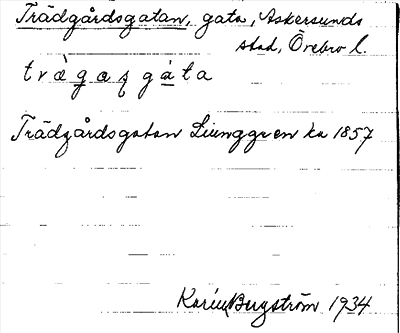 Trädgårdsgatan, gata, Askersunds
stad, Örebro l.
Trädgårdsgatan Liunggren ka 1857
Karin Bergström 1934